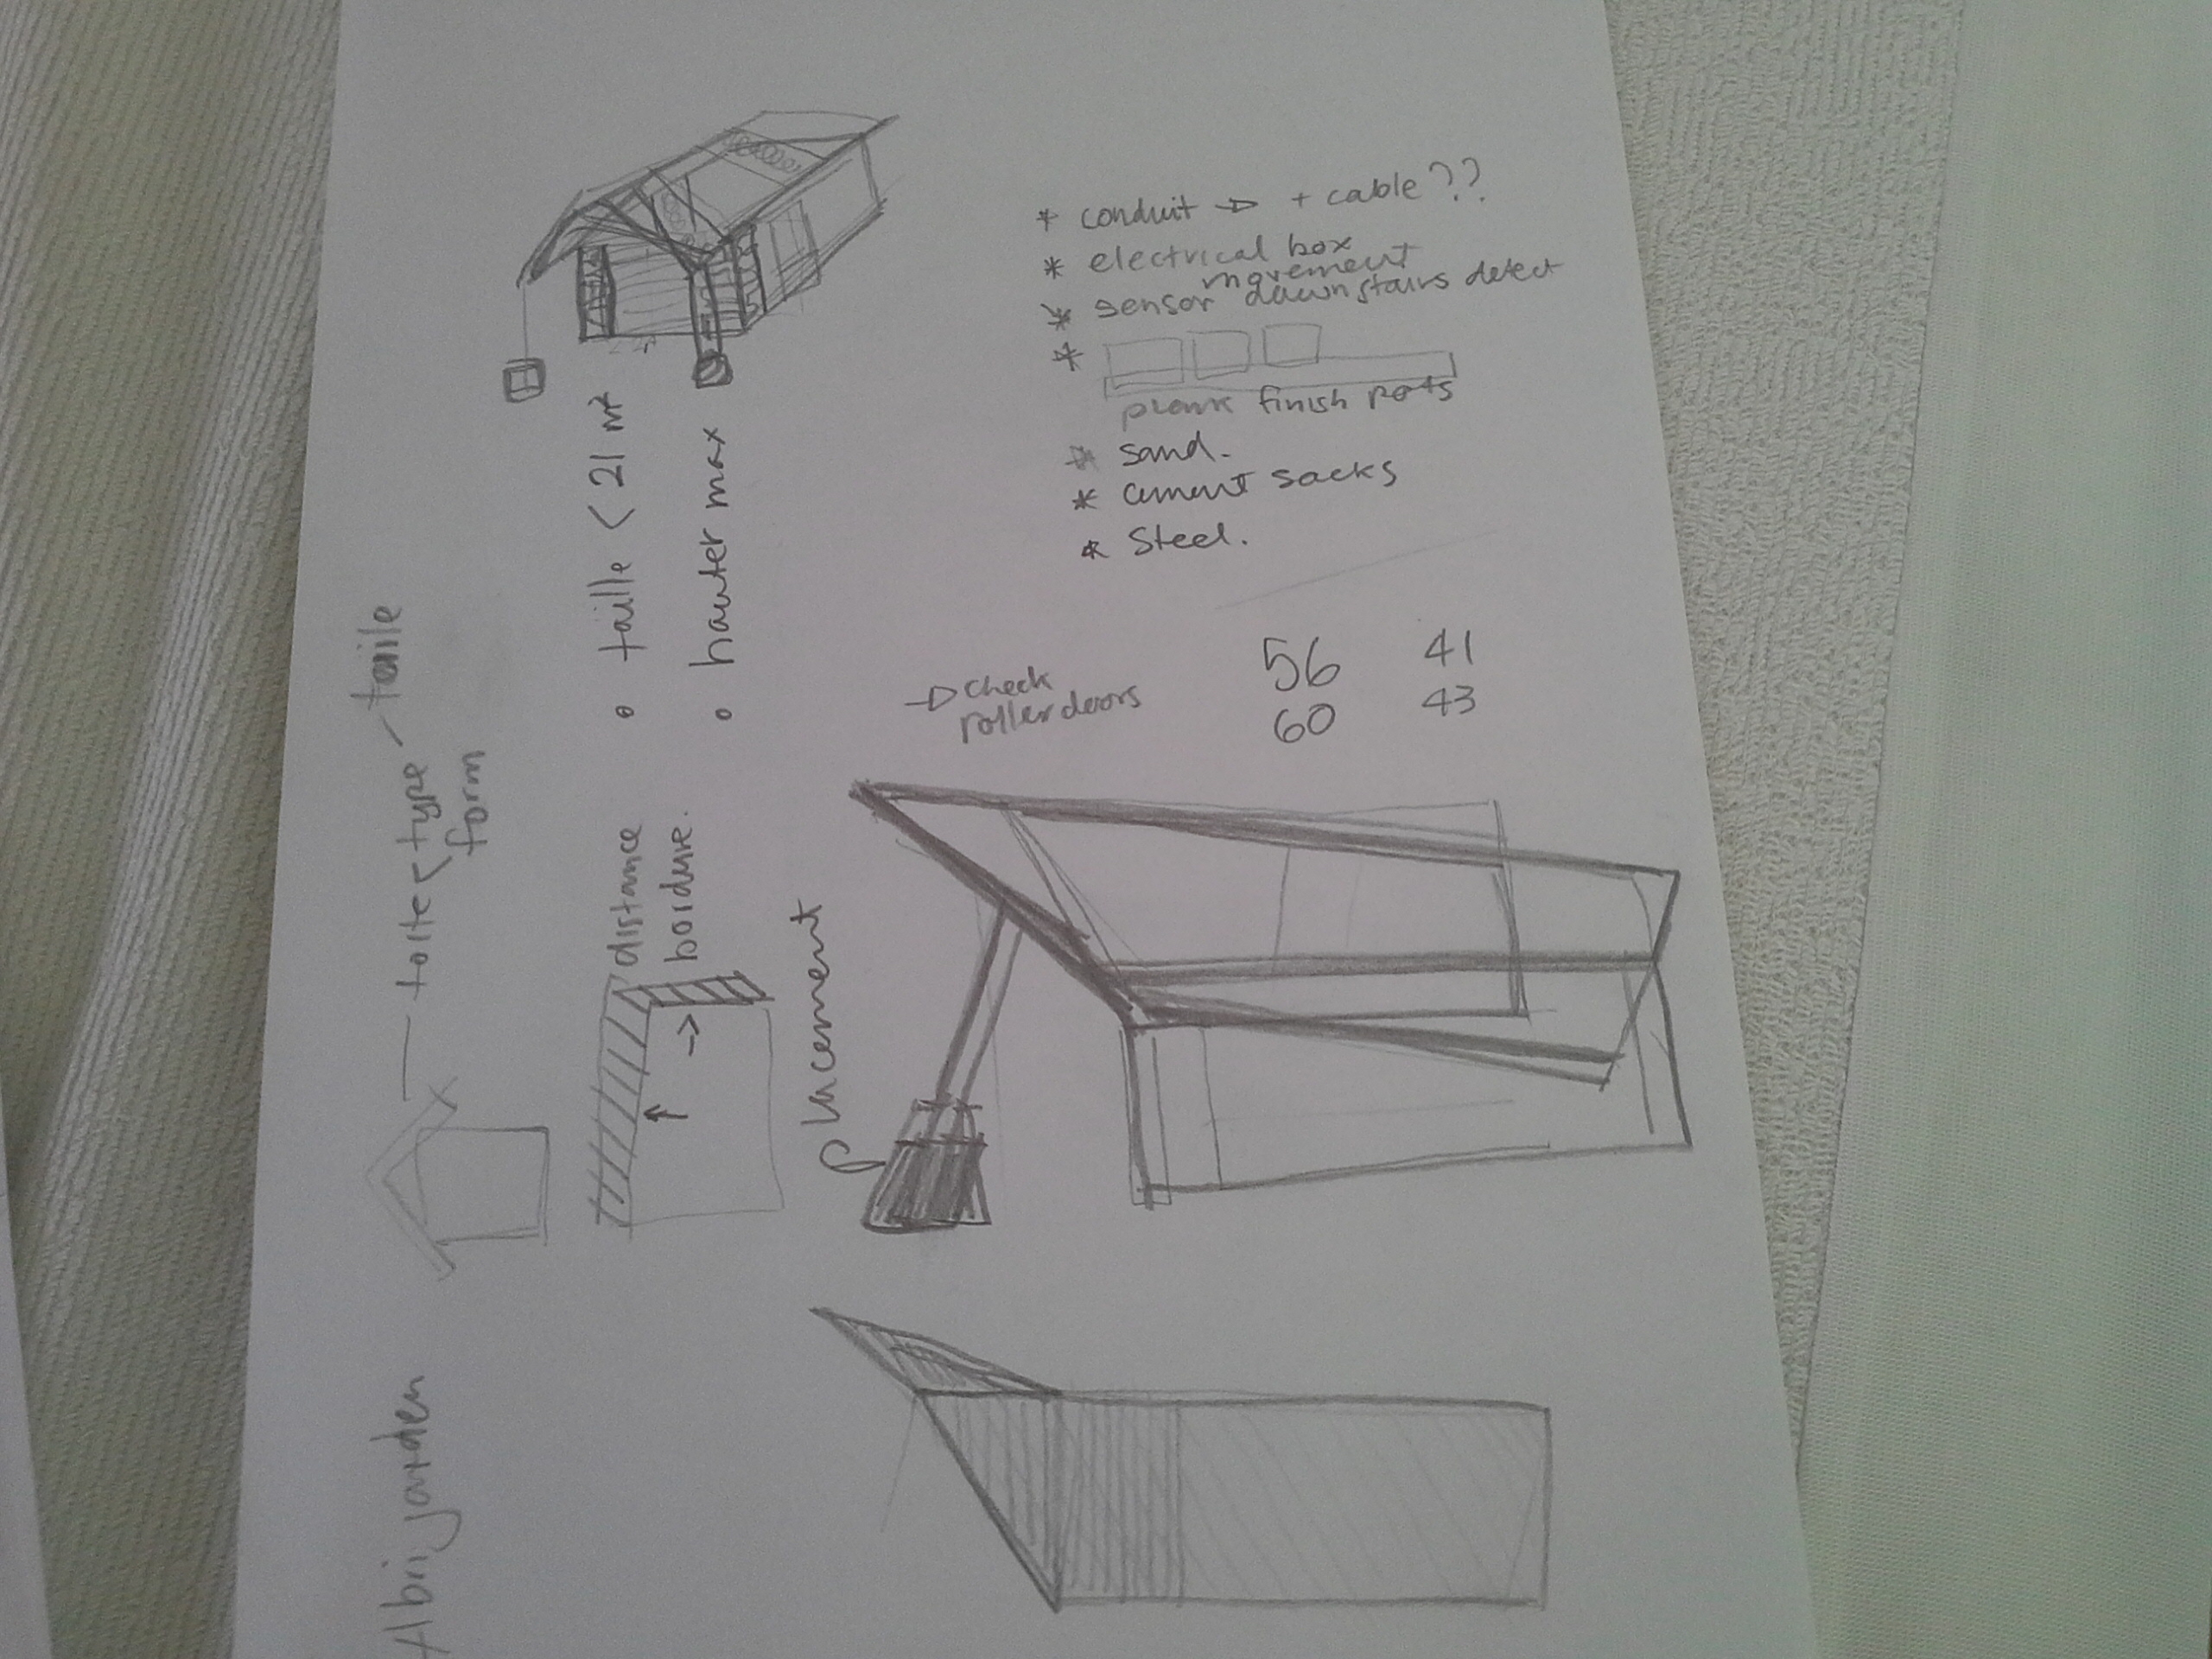 Abri jarden
toite < type - taille
form
distance
bordure.
• taille < 21 m²
• hauter max
placement
* conduit → + cable ??
* electrical box
* sensor movement downstairs detect
*
plank finish pots
* sand.
* cement sacks
* Steel.
→ check
roller doors
56 41
60 43